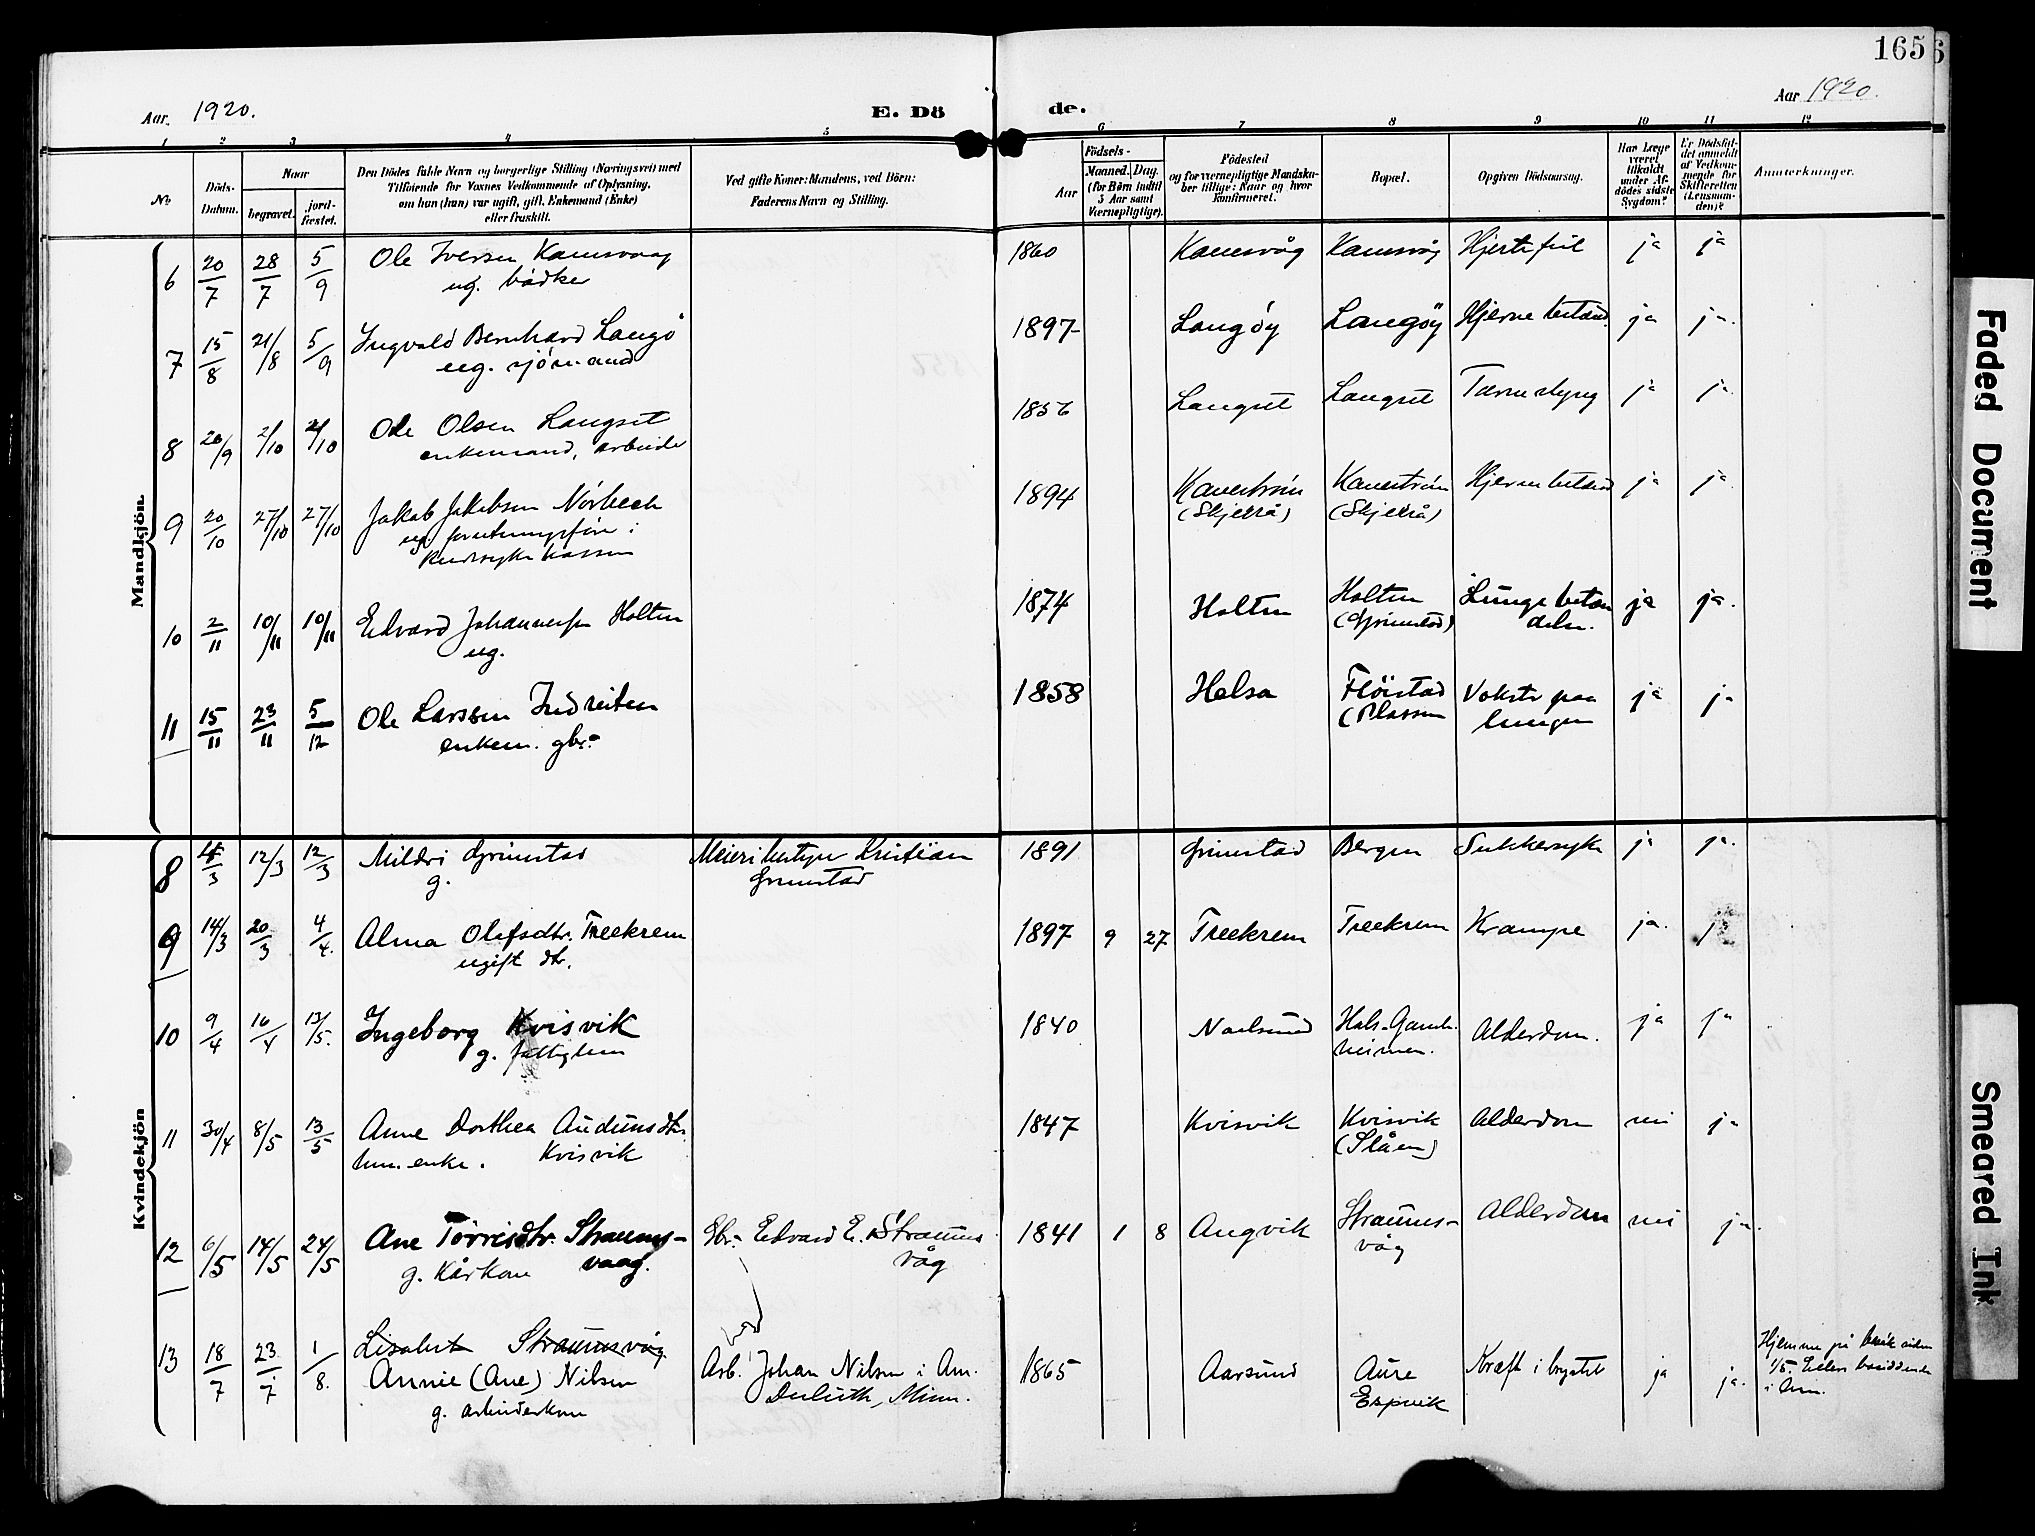 165
Aar. 1920.
E. Dö
de.
Aar 1920.
1 2 3 4 5 6 7 8 9 10 11 12
No
Döds-Datum.
Naar
begravet.
jordfæstet.
Den Dödes fulde Navn og borgerlige Stilling (Næringsvei) med
Tilföiende for Voxnes Vedkommende af Oplysning,
om han (hun) var ugift, gift, Enkemand (Enke)
eller fraskilt.
Ved gifte Koner: Mandens, ved Börn:
Faderens Navn og Stilling.
Födsels-
Aar
Maaned. Dag.
(for Börn indtil
3 Aar samt
Værnepligtige).
Födested
og for værnepligtige Mandskaber tillige: Naar og hvor
konfirmeret.
Bopæl.
Opgiven Dödsaarsag.
Har Læge
været
tilkaldt
under Afdödes sidste
Sygdom?
Er Dödsfaldet anmeldt
af Vedkommende for
Skifteretten
(Lensmanden)?
Anmærkninger.
Mandkjön
6 20/7 28/7 5/9 Ole Iversen Kanesvaag 1860 Kanesvåg Kanesvåg Hjertefeil ja ja
ug. bödker
7 15/8 21/8 5/9 Ingvald Bernhard Langö 1897 Langöy Langöy Hjernebetænd. ja ja.
ug. sjömand
8 20/9 2/10 2/10 Ole Olsen Langset 1856 Langset Langset Tarmslyng ja ja.
enkemand, arbeider
9 20/10 27/10 27/10 Jakob Jakobsen Nörbech 1894 Kanestrøm Kanestrøm Hjernebetænd ja ja.
(Skjelrå) (Skjelrå)
ug. forretningsförer i
10 2/11 10/11 10/11 Edvard Johannessen Holten 1874 Holten Holten Lungebetændelse. ja ja.
ug. (Grimstad)
11 15/11 23/11 5/12 Ole Larssen Indreiten 1858 Halsa Flöistad Vekst paa ja ja
enkem. gbr. (Plassen lungen
Kvindekjön
8 12/3 12/3 Mildri Grimstad Meieribestyr Kristian 1891 Grimstad Bergen Sukkersyke ja ja.
g. Grimstad
9 14/3 20/3 4/4. Alma Olefsdtr. Treekrem 1897 9 27 Treekrem Treekrem Krampe ja. ja
ugift dtr.
10 9/4 16/4 13/5. Ingeborg Kvisvik 1840 Naalsund Hals-Gamleheimen. Alderdom. ja ja
g. fattiglem
11 30/4 8/5 13/5 Anne Dorthea Audunsdtr. 1847 Kvisvik Kvisvik Alderdom nei ja
enke. Kvisvik (Slåen)
12 6/5 14/5 24/5 Ane Törrisdtr. Straums- Gbr. Edvard E. Straums 1841 1 8 Angvik Straums- Alderdom nei ja.
g. Kårkone vaag. våg våg
13 18/7 23/7 1/8. Lisabet Straumsvåg
Annie (Ane) Nilsen Arb. Johan Nilsen i Am. 1865 Aarsund Aure Kræft i brystet ja ja.
g. arbeiderkone Duluth, Minn. Espvik
Hjemme på besök siden
1/5. Ellers boende
i Am.
Faded Document
Smeared Ink